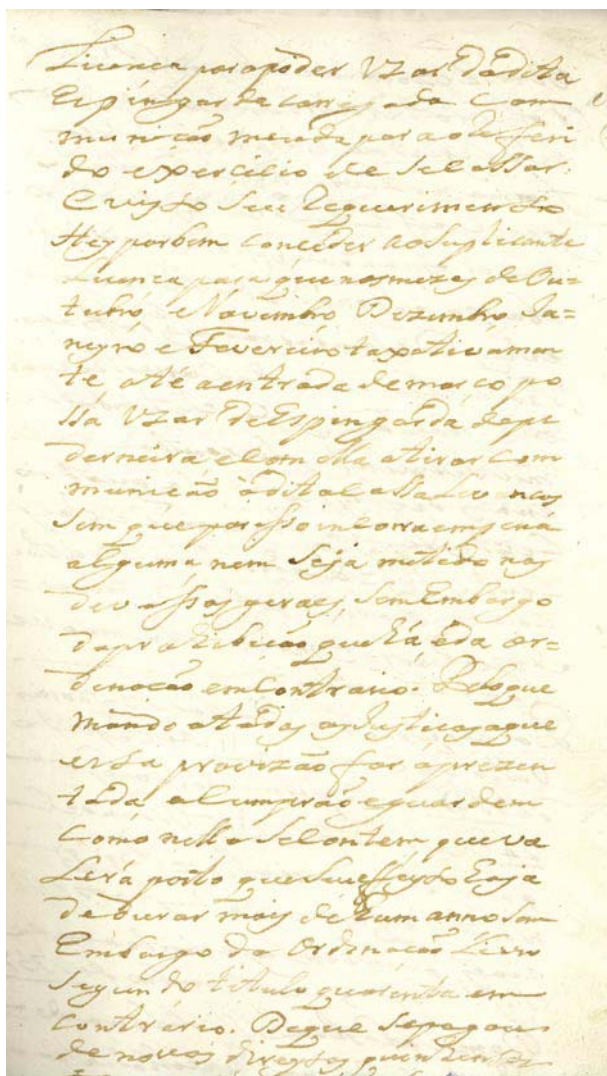 Licença para poder Uzar dadita
Espingarda carregada Com
munição meuda para o refferi
do exercicio de se cassar.
E visto seu Requerimento
Hey por bem Conceder ao Suplicante
Licença para que nos mezes de Ou=
tubro, e Novembro, Dezembro, Ja=
neyro e Fevereiro taxativamen
te até a entrada de março po
ssa Uzar de Espingarda depe
derneira e com ella atirar com
munição à dita
sem que por isso incorra em pena
alguma nem seja metido nas
devassas geraes, sem Embargo
da prohibição que há, e da or=
denação em Contrario. Pelo que
Mando atodas as Justiças aque
esta provizão for aprezen
tada a Cumprão e guardem
Como nella se contem que va
lerá posto que seu effeyto haja
de durar mais de hum anno sem
Embargo da Ordenação Livro
segundo titulo quarenta em
Contrario. De que se pagou
de novos direytos quinhentos